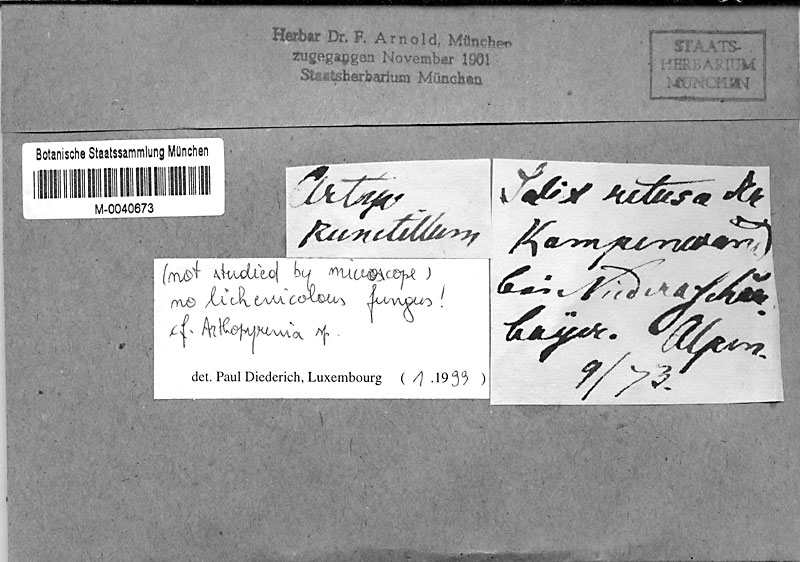 Herbar Dr. F. Arnold, München
zugegangen November 1901
Staatsherbarium München
STAATS-
HERBARIUM
MÜNCHEN
Botanische Staatssammlung München
M-0040673
punctillum
Salix retusa der
Kampenwand
bei Niederaschau
bayer. Alpen.
9/73.
(not studied by microscope)
no lichenicolous fungus!
cf. Arthopyrenia sp.
det. Paul Diederich, Luxembourg (1.1993)